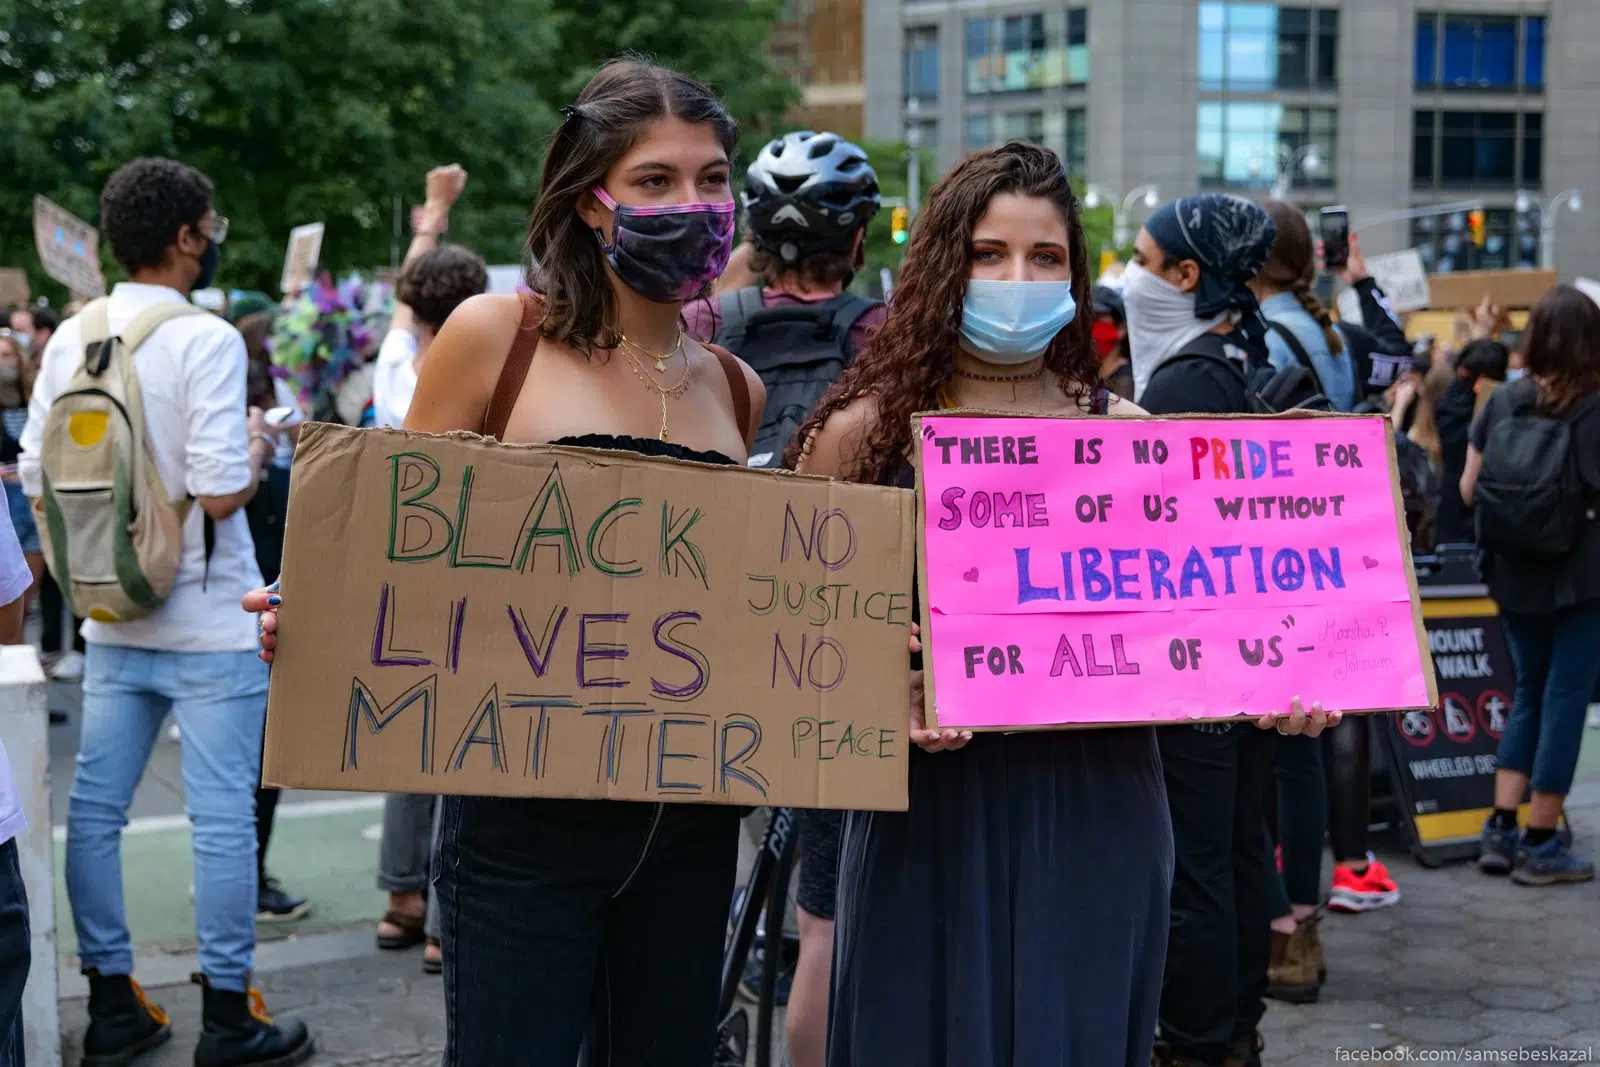 BLACK
LIVES
MATTER
NO
JUSTICE
NO
PEACE
"THERE IS NO PRIDE FOR
SOME OF US WITHOUT
LIBERATION
FOR ALL OF US" - Marsha P.
Johnson
MOUNT
WALK
WHEELED DE
facebook.com/samsebeskazal